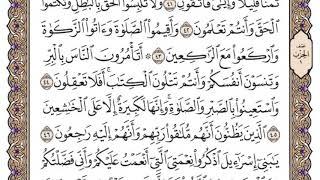 ثَمَنًا قَلِيلًا وَإِيَّٰىَ فَٱتَّقُونِ ٤١ وَلَا تَلْبِسُوا۟ ٱلْحَقَّ بِٱلْبَٰطِلِ وَتَكْتُمُوا۟
ٱلْحَقَّ وَأَنتُمْ تَعْلَمُونَ ٤٢ وَأَقِيمُوا۟ ٱلصَّلَوٰةَ وَءَاتُوا۟ ٱلزَّكَوٰةَ
وَٱرْكَعُوا۟ مَعَ ٱلرَّٰكِعِينَ ٤٣ ۞ أَتَأْمُرُونَ ٱلنَّاسَ بِٱلْبِرِّ
وَتَنسَوْنَ أَنفُسَكُمْ وَأَنتُمْ تَتْلُونَ ٱلْكِتَٰبَ أَفَلَا تَعْقِلُونَ ٤٤
وَٱسْتَعِينُوا۟ بِٱلصَّبْرِ وَٱلصَّلَوٰةِ وَإِنَّهَا لَكَبِيرَةٌ إِلَّا عَلَى ٱلْخَٰشِعِينَ
٤٥ ٱلَّذِينَ يَظُنُّونَ أَنَّهُم مُّلَٰقُوا۟ رَبِّهِمْ وَأَنَّهُمْ إِلَيْهِ رَٰجِعُونَ ٤٦
يَٰبَنِىٓ إِسْرَٰٓءِيلَ ٱذْكُرُوا۟ نِعْمَتِىَ ٱلَّتِىٓ أَنْعَمْتُ عَلَيْكُمْ وَأَنِّى فَضَّلْتُكُمْ